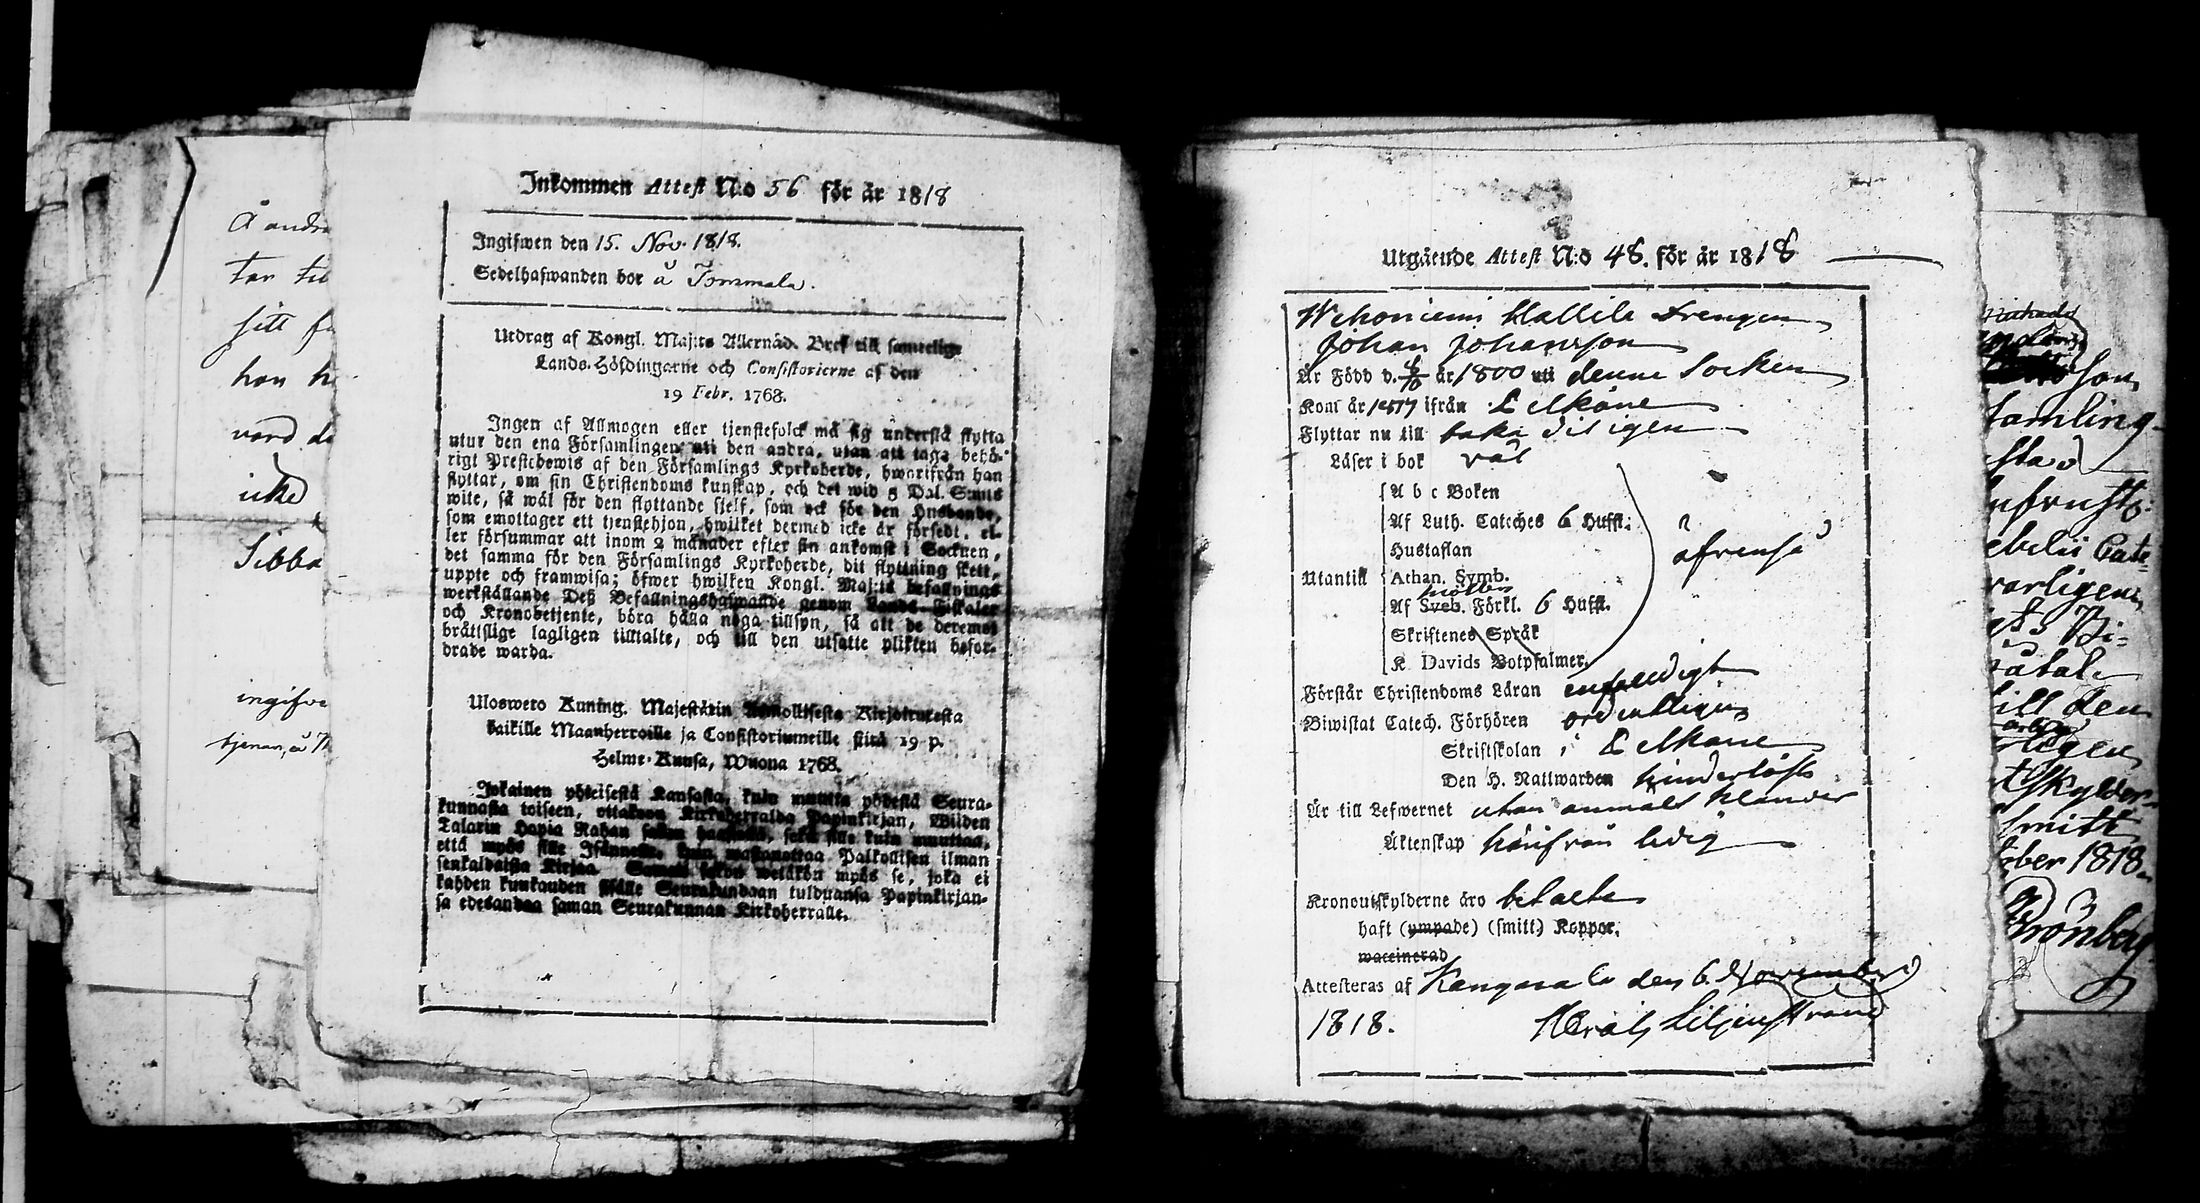 Å andr
tar til
sitt fö
han h
vard de
icke
Sibba
ingifve
tjenar, å
Inkommen Attest N:o 56 för år 1818
Ingifwen den 15. Nov. 1818.
Sedelhafwanden bor å Tommala.
Utdrag af Kongl. Maj:ts Allernåd. Bref till samtelige
Lands-Höfdingarne och Consistorierne af den
19 Febr. 1768.
Ingen af Allmogen eller tjenstefolck må sig understå flytta
utur den ena Församlingen uti den andra, utan att taga behö-
rigt Prestebewis af den Församlings Kyrkoherde, hwarifrån han
flyttar, om sin Christendoms kunskap, och det wid 5 Dal. S:mts
wite, så wäl för den flyttande sielf, som ock för den Husbonde,
som emottager ett tjenstehjon, hwilket dermed icke är försedt, el-
ler försummar att inom 2 månader efter sin ankomst i Socknen,
det samma för den Församlings Kyrkoherde, dit flyttning skett,
uppte och framwisa; öfwer hwilken Kongl. Maj:ts befallnings
werkställande Deß Befallningshafwande genom Lands-Fiskaler
och Kronobetjente, böra hålla noga tillsyn, så att de deremot
bråttslige lagligen tilltalte, och till den utsatte plikten befor-
drade warda.
Ulosweto Kuning. Majestätin Armollisesta Kirjoituxesta
kaikille Maanherroille ja Consistoriumeille siitä 19 p.
Helme-Kuusa, Wuona 1768.
Jokainen yhteisestä Kansasta, kuin muutta yhdestä Seura-
kunnasta toiseen, ottakoon Kirkoherralda Papinkirjan, Wiiden
Talarin Hopia Rahan sakon haastolla, sekä sille kuin muuttaa,
että myös sille Isännelle, kuin wastanottaa Palkollisen ilman
senkaldaista Kirjaa. Saman sakon wetäkön myös se, joka ei
kahden kuukauden sisälle Seurakundaan tulduansa Papinkirjan-
sa edesandaa saman Seurakunnan Kirkoherralle.
Utgående Attest N:o 48. för år 1818
Wehoniemi Hallila Drengen
Johan Johansson
Är Född d. 4/10 år 1800 uti denne Socken
Kom år 1817 ifrån Lelkäne
Flyttar nu till baka dit igen
Läser i bok väl
A b c Boken
Af Luth. Cateches 6 Hufst.
Hustaflan
Utantill Athan. Symb.
Af Sveb. Förkl. 6 Hufst.
Skriftenes Språk
K. Davids Botpsalmer.
äfvenså
Förstår Christendoms Läran enfaldigt
Biwistat Catech. Förhören ordentligen
Skriftskolan i Lelkäne
Den H. Nattwarden hinderlöst
Är till Lefwernet utan anmält klander
Äktenskap härifrån ledig
Kronoutskylderne äro betalte
haft (ympade) (smitt) Koppor.
waccinerad
Attesteras af Kangasala den 6. November
1818. Liljenstrand
son
amling-
stad
Cate-
varligen
Bi-
till den
tskylder
smitt
ober 1818.
Grönberg